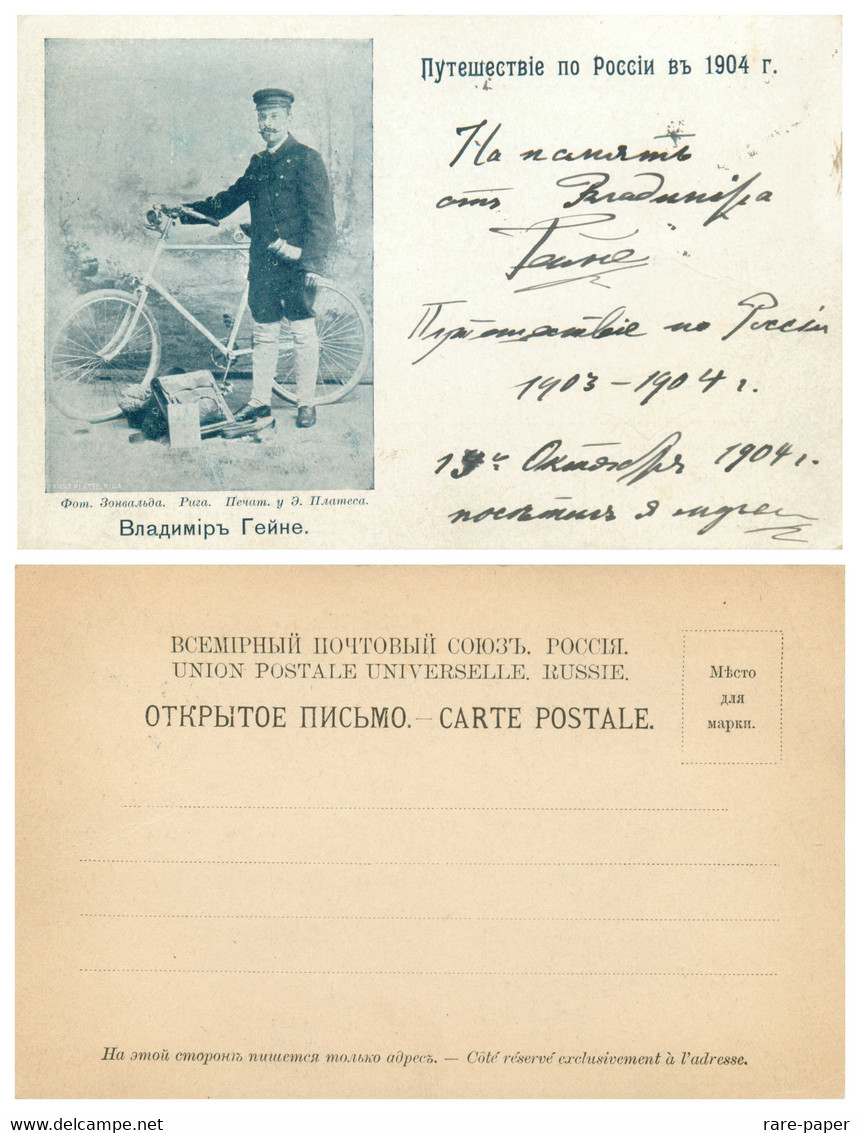 Путешествіе по Россіи въ 1904 г.
На память
отъ Владиміра
Гейне
Путешествіе по Россіи
1903-1904 г.
Октября 1904 г.
посѣтилъ я музей
Фот. Зонвальда. Рига. Печат. у Э. Платеса.
Владиміръ Гейне.
ВСЕМІРНЫЙ ПОЧТОВЫЙ СОЮЗЪ. РОССІЯ.
UNION POSTALE UNIVERSELLE. RUSSIE.
ОТКРЫТОЕ ПИСЬМО.—CARTE POSTALE.
Мѣсто
для
марки.
На этой сторонѣ пишется только адресъ. — Côté réservé exclusivement à l'adresse.
delcampe.net
rare-paper